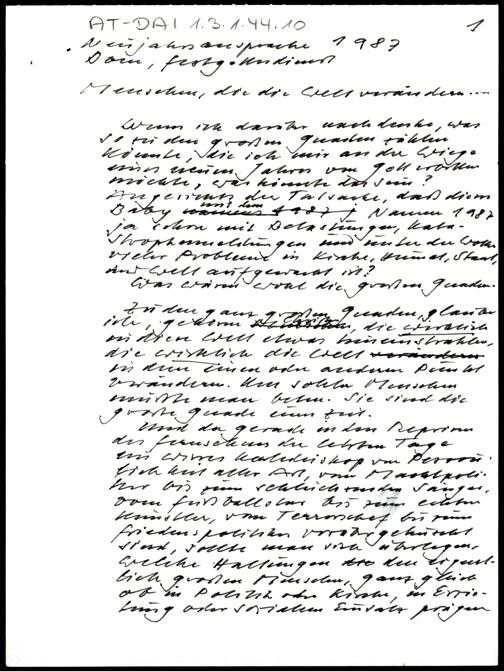 AT-DAI 1.3.1.44.10
1
Neujahrsansprache 1987
Dom, Festgottesdienst
Menschen, die die Welt verändern...
Wenn ich darüber nachdenke, was
so zu den großen Gnaden zählen
könnte, die ich mir an der Wiege
eines neuen Jahres von Gott erbitten
möchte, was könnte das sein?
Angesichts der Tatsache, daß dieses
Baby mit dem Namen 1987
ja schon mit Belastungen, Kata-
strophenmeldungen und unter der Wolke
vieler Probleme in Kirche, Staat,
und Welt aufgewacht ist?
Was wären wohl die großen Gnaden.
Zu den ganz großen Gnaden, glaube
ich, gehören die wirklich
in diese Welt etwas hineinstrahlen,
die wirklich die Welt verändern
in dem einen oder anderen Punkt
verändern. Um solche Menschen
müßte man beten. Sie sind die
große Gnade einer Zeit.
Und da gerade in den Reprisen
des Fernsehens der letzten Tage
ein wirres Kaleidoskop von Persön-
lichkeit aller Art, vom Machtpoli-
tiker bis zum Sänger,
vom Fußballstar bis zum echten
Künstler, vom Terroristen bis zum
Friedenspolitiker vorübergehuscht
sind, sollte man sich überlegen,
welche Haltungen die den eigent-
lich großen Menschen, ganz gleich
ob in Politik oder Kirche, in Erzie-
hung oder sozialem Einsatz prägen